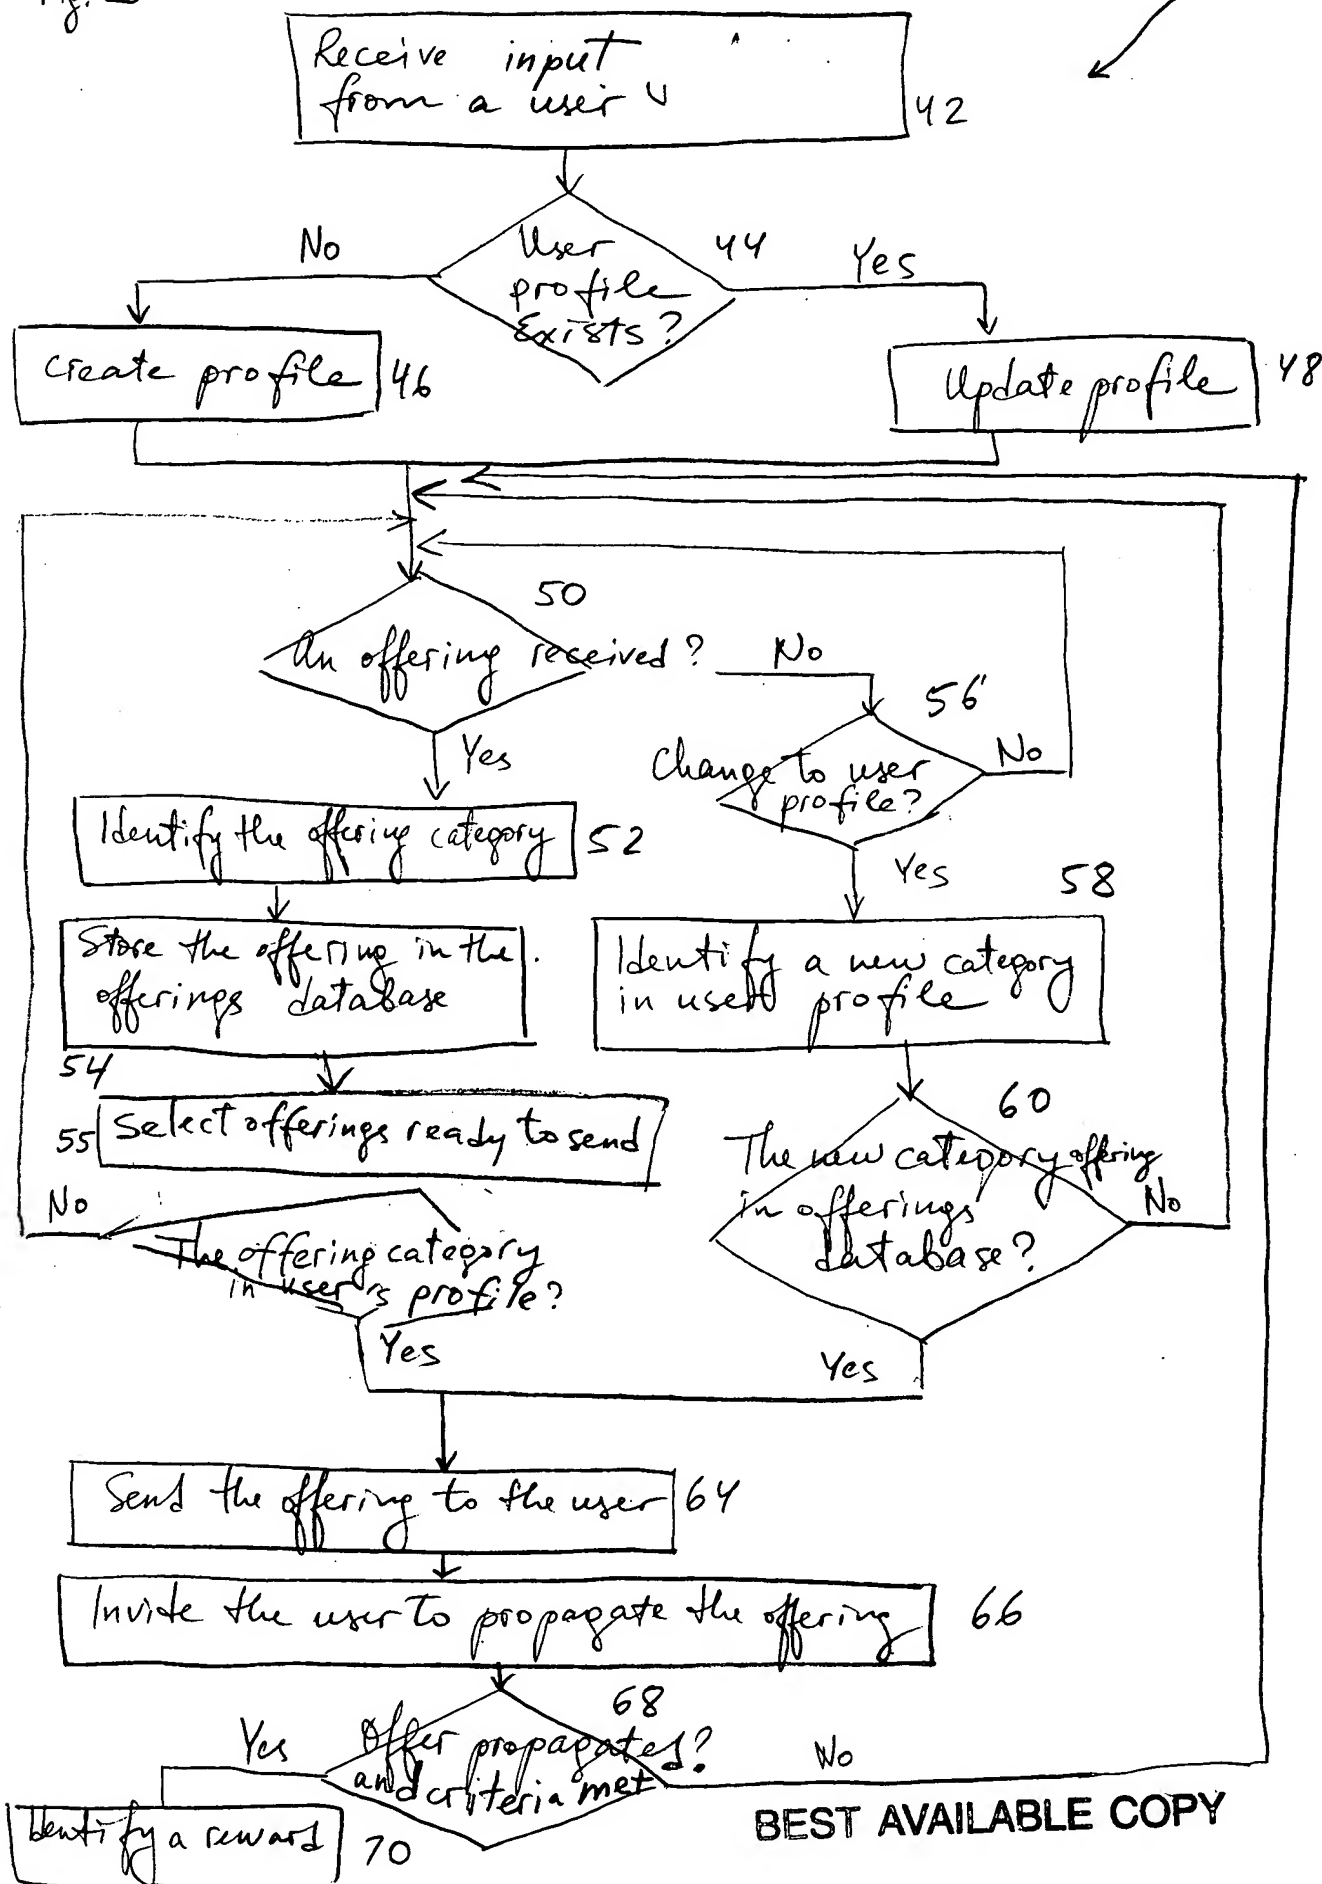 Fig.
Receive input
from a user
42
User
profile
Exists?
44
No
Yes
Create profile
46
Update profile
48
50
An offering received?
No
56
Yes
Change to user
profile?
No
Identify the offering category
52
Yes
58
Store the offering in the
offerings database
54
Identify a new category
in user profile
55
Select offerings ready to send
60
The new category offering
in offerings
database?
No
No
The offering category
in user's profile?
Yes
Yes
Send the offering to the user
64
Invite the user to propagate the offering
66
68
Yes
Offer propagated?
and criteria met
No
Identify a reward
70
BEST AVAILABLE COPY